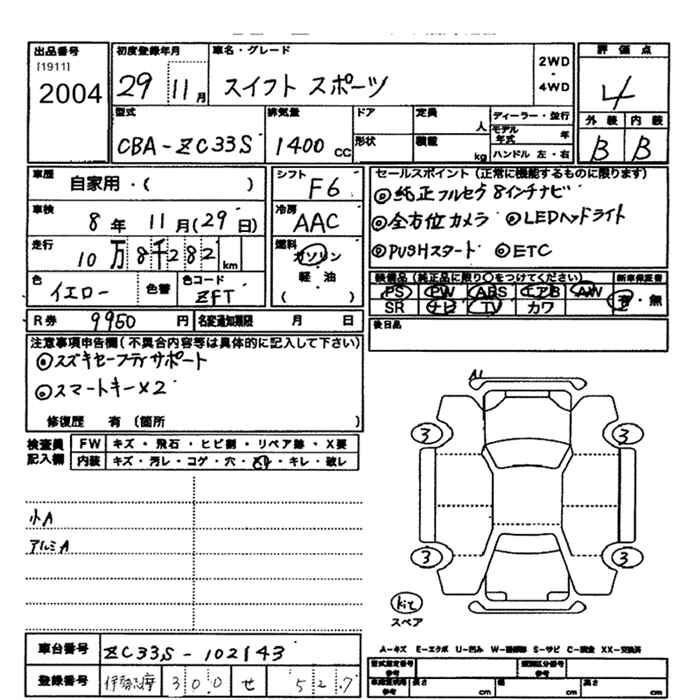 出品番号
[1911]
2004
初度登録年月
29 11月
車名・グレード
スイフト スポーツ
2WD
・
4WD
評価点
4
型式
CBA-ZC33S
排気量
1400 CC
ドア
形状
定員
人
積載
kg
ディーラー・並行
モデル年式 年
ハンドル 左・右
外装 内装
B B
車歴
自家用・( )
車検
8年 11月(29日)
走行
10万8千282km
色
イエロー
色替
色コード
ZFT
シフト
F6
冷房
AAC
燃料
ガソリン
軽・油
( )
セールスポイント(正常に機能するものに限ります)
◎純正フルセグ8インチナビ
◎全方位カメラ ◎LEDヘッドライト
◎PUSHスタート ◎ETC
装備品(純正品に限り○をつけてください)
新車保証書
PS PW ABS エアB AW
SR ナビ TV カワ
有・無
R券 9950円
名変通知期限 月 日
後日品
注意事項申告欄(不具合内容等は具体的に記入して下さい)
◎スズキセーフティサポート
◎スマートキー×2
修復歴 有(箇所 )
検査員記入欄
FW キズ・飛石・ヒビ割・リペア跡・X要
内装 キズ・汚レ・コゲ・穴・スレ・キレ・破レ
小A
アルミA
A1
3
3
3
3
kit
スペア
車台番号 ZC33S-102143
登録番号 伊勢志摩 300 せ 527
A-キズ E-エクボ U-凹み W-補修跡 S-サビ C-腐食 XX-交換済
型式指定番号
参考
類別区分番号
参考
車庫証明用
参考
長さ cm
幅 cm
高さ cm